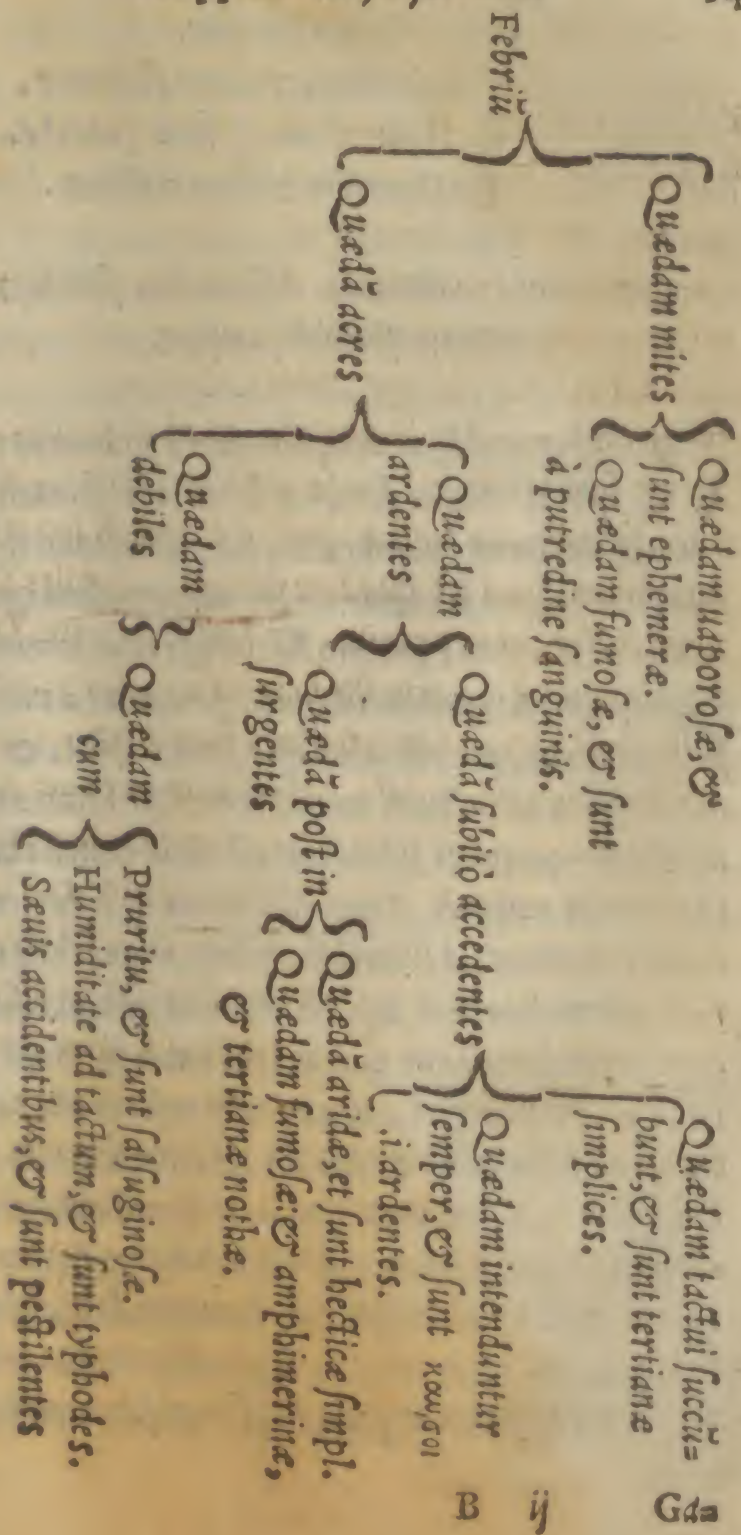 Febriũ
Quædam mites
Quædam uaporosæ, &
sunt ephemeræ.
Quædam fumosæ, & sunt
à putredine sanguinis.
Quædã acres
Quædam
ardentes
Quædã subitò accedentes
Quædam tactui succũ=
bunt, & sunt tertianæ
simplices.
Quædam intenduntur
semper, & sunt καυσοι
.i.ardentes.
Quædã post in
surgentes
Quædã aridæ, et sunt hecticæ simpl.
Quædam fumosæ: & amphimerinæ,
& tertianæ nothæ.
Quædam
debiles
Quædam
cum
Pruritu, & sunt salsuginosæ.
Humiditate ad tactum, & sunt typhodes.
Sæuis accidentibus, & sunt pestilentes
B ij
Gan